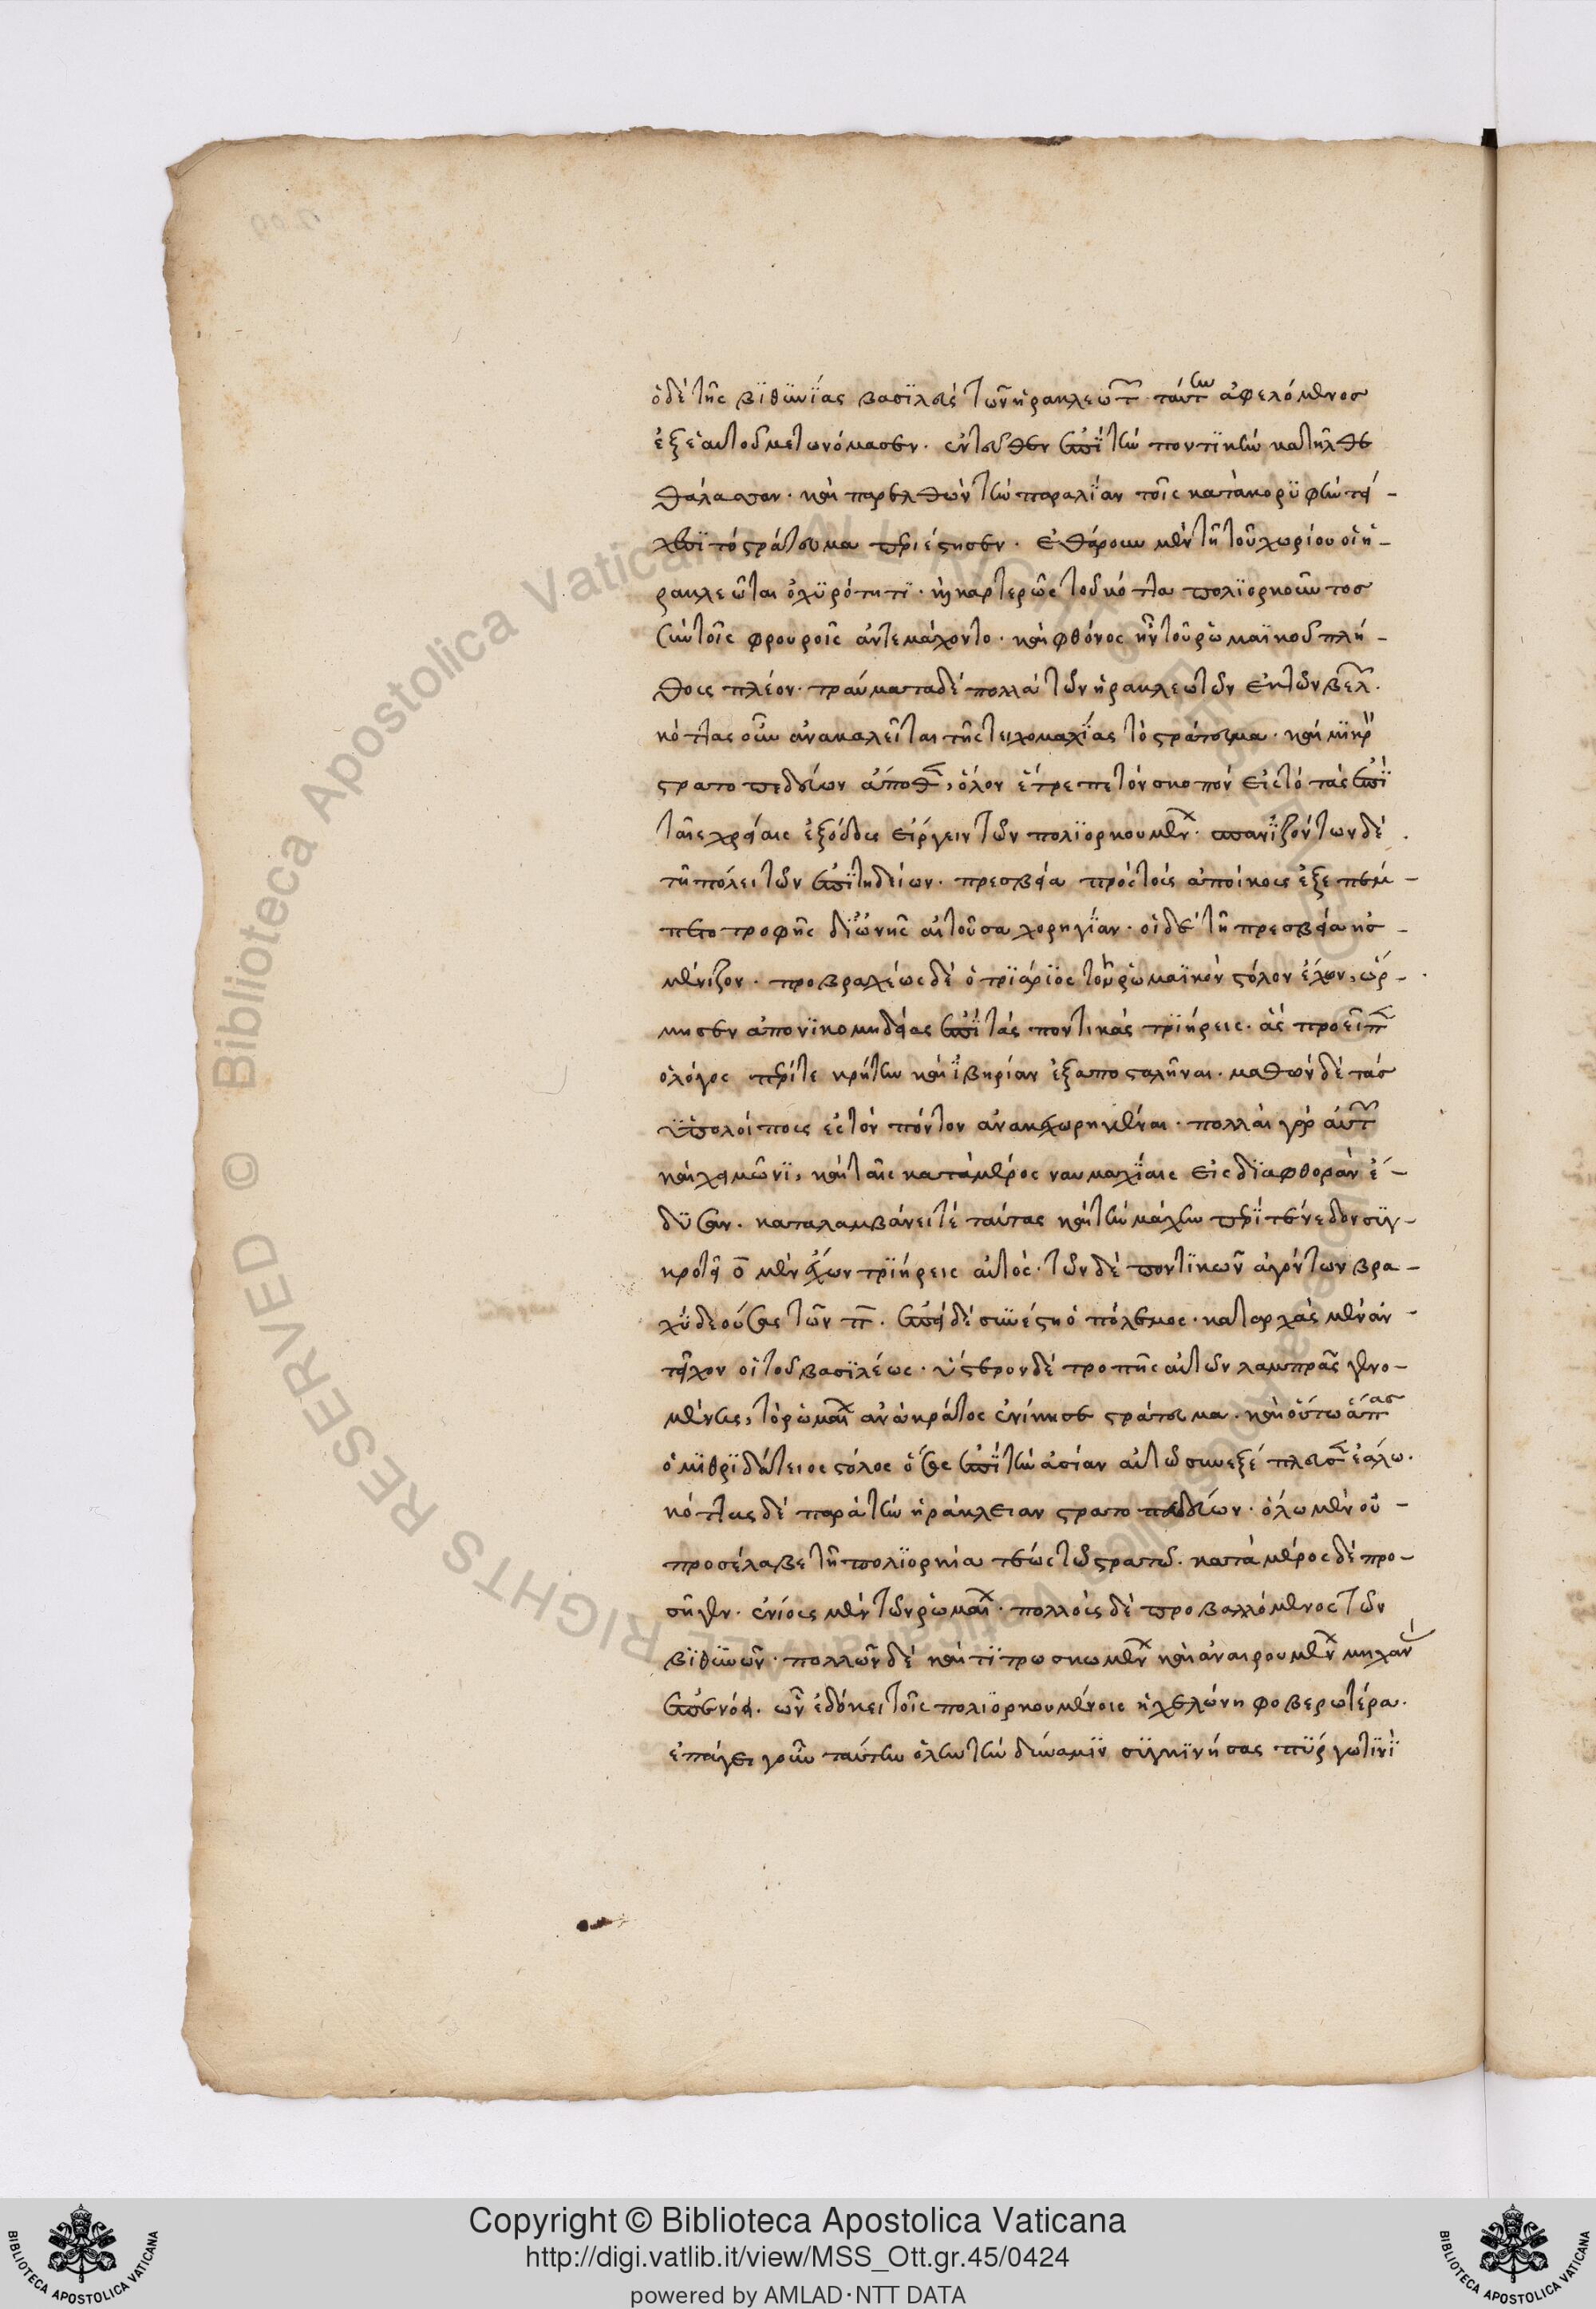 ὁ δὲ τῆς βϊθϋνΐας βασϊλεὺς τῶν ἡρακλεωτ ταύτω ἀφελόμενος
ἐξ ἑαυτοῦ μετωνόμασεν. ἐντεῦθεν ἐπῒ τὴν ποντϊκὴν κατῆλθε
θάλασσαν. καὶ παρελθὼν τὴν παραλΐαν τοῖς κατὰ κορϋφὴν τεί-
χεσϊ τὸ στράτευμα περιέστησεν. ἐθάρουν μὲν τῆ τοῦ χωρίου οἱ ἡ-
ρακλεῶται ὀχϋρότητϊ. καὶ καρτερῶς τοῦ κόττα πολϊορκοῦντος
σὺν τοῖς φρουροῖς ἀντεμάχοντο. καὶ φθόνος ἦν τοῦ ῥωμαϊκοῦ πλή-
θους πλέον. τραύματα δὲ πολλὰ τῶν ἡρακλεωτῶν ἐκ τῶν βελ.
κόττας οὖν ἀνακαλεῖται τῆς τειχομαχΐας τὸ στράτευμα. καὶ μϊκρ
στρατοπεδεύων ἄποθ, ὅλον ἔτρεπε τὸν σκοπὸν εἰς τὸ τὰς ἐπῒ
ταῖς χρείαις ἐξόδους εἴργειν τῶν πολϊορκουμέν. σπανΐζόντων δὲ
τῆ πόλει τῶν ἐπϊτηδείων. πρεσβεία πρὸς τοὺς ἀποίκους ἐξεπέμ-
πετο τροφῆς δϊ' ὠνῆς αἰτοῦσα χορηγΐαν. οἱ δὲ τῆ πρεσβεία ἠσ-
μένιζον. πρὸ βραχέως δὲ ὁ τρϊάρϊος τὸν ῥωμαϊκὸν στόλον ἔχων, ὥρ-
μησεν ἀπὸ νϊκομηδείας ἐπῒ τὰς ποντικὰς τρϊήρεις. ἃς προεῖπ
ὁ λόγος περί τε κρήτην καὶ ἰβηρίαν ἐξαποσταλῆναι. μαθὼν δὲ τὰς
ϋπολοίπους ἐς τὸν πόντον ἀνακεχωρηκέναι. πολλαὶ γὰρ αὐτ
καὶ χειμῶνϊ, καὶ ταῖς κατὰ μέρος ναυμαχΐαις εἰς δϊαφθορὰν ἔ-
δϋσαν. καταλαμβάνει τὲ ταύτας καὶ τὴν μάχην περῒ τένεδον συγ-
κροτεῖ ο μὲν ἔχων τρϊήρεις αὐτὸς. τῶν δὲ ποντϊκῶν ἀγόντων βρα-
χὺ δεούσας τῶν π. ἐπεὶ δὲ συνέστη ὁ πόλεμος. κατ' ἀρχὰς μὲν ἀν-
τεῖχον οἱ τοῦ βασϊλέως. ὕστερον δὲ τροπῆς αὐτῶν λαμπρᾶς γενο-
μένης, τὸ ῥωμαϊ ἀνὰ κράτος ἐνίκησε στράτευμα. καὶ οὕτω ἅπας
ὁ μϊθρϊδάτειος στόλος ὅσος ἐπῒ τὴν ἀσίαν αὐτῶ συνεξέπλευσ ἑάλω.
κόττας δὲ παρὰ τὴν ἡράκλειαν στρατοπεδεύων. ὅλω μὲν οὐ
προσέλαβε τῆ πολϊορκία τέως τῶ στρατῶ. κατὰ μέρος δὲ προ-
σῆγεν. ἐνίους μὲν τῶν ῥωμαϊ. πολλοὺς δὲ προβαλλόμενος τῶν
βϊθϋνῶν. πολλῶν δὲ καὶ τϊτρωσκωμέν καὶ ἀναιρουμέν μηχανὰς
ἐπενόει. ὧν ἐδόκει τοῖς πολιορκουμένοις ἡ χελώνη φοβερωτέρα.
ἐπάγει γοῦν ταύτην ὅλην τὴν δύναμϊν συγκϊνήσας πύργω τϊνῒ